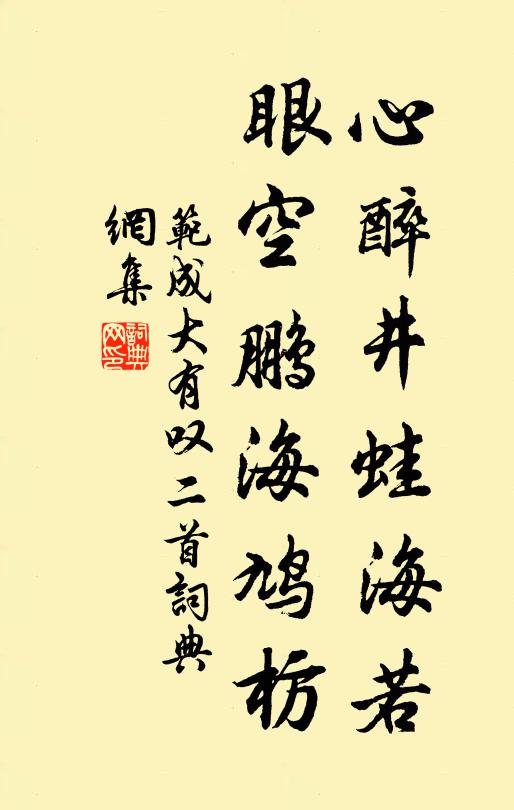 心醉井蛙海若
眼空鹏海鸠枋
範成大有叹二首詞典
網集
詞典网印